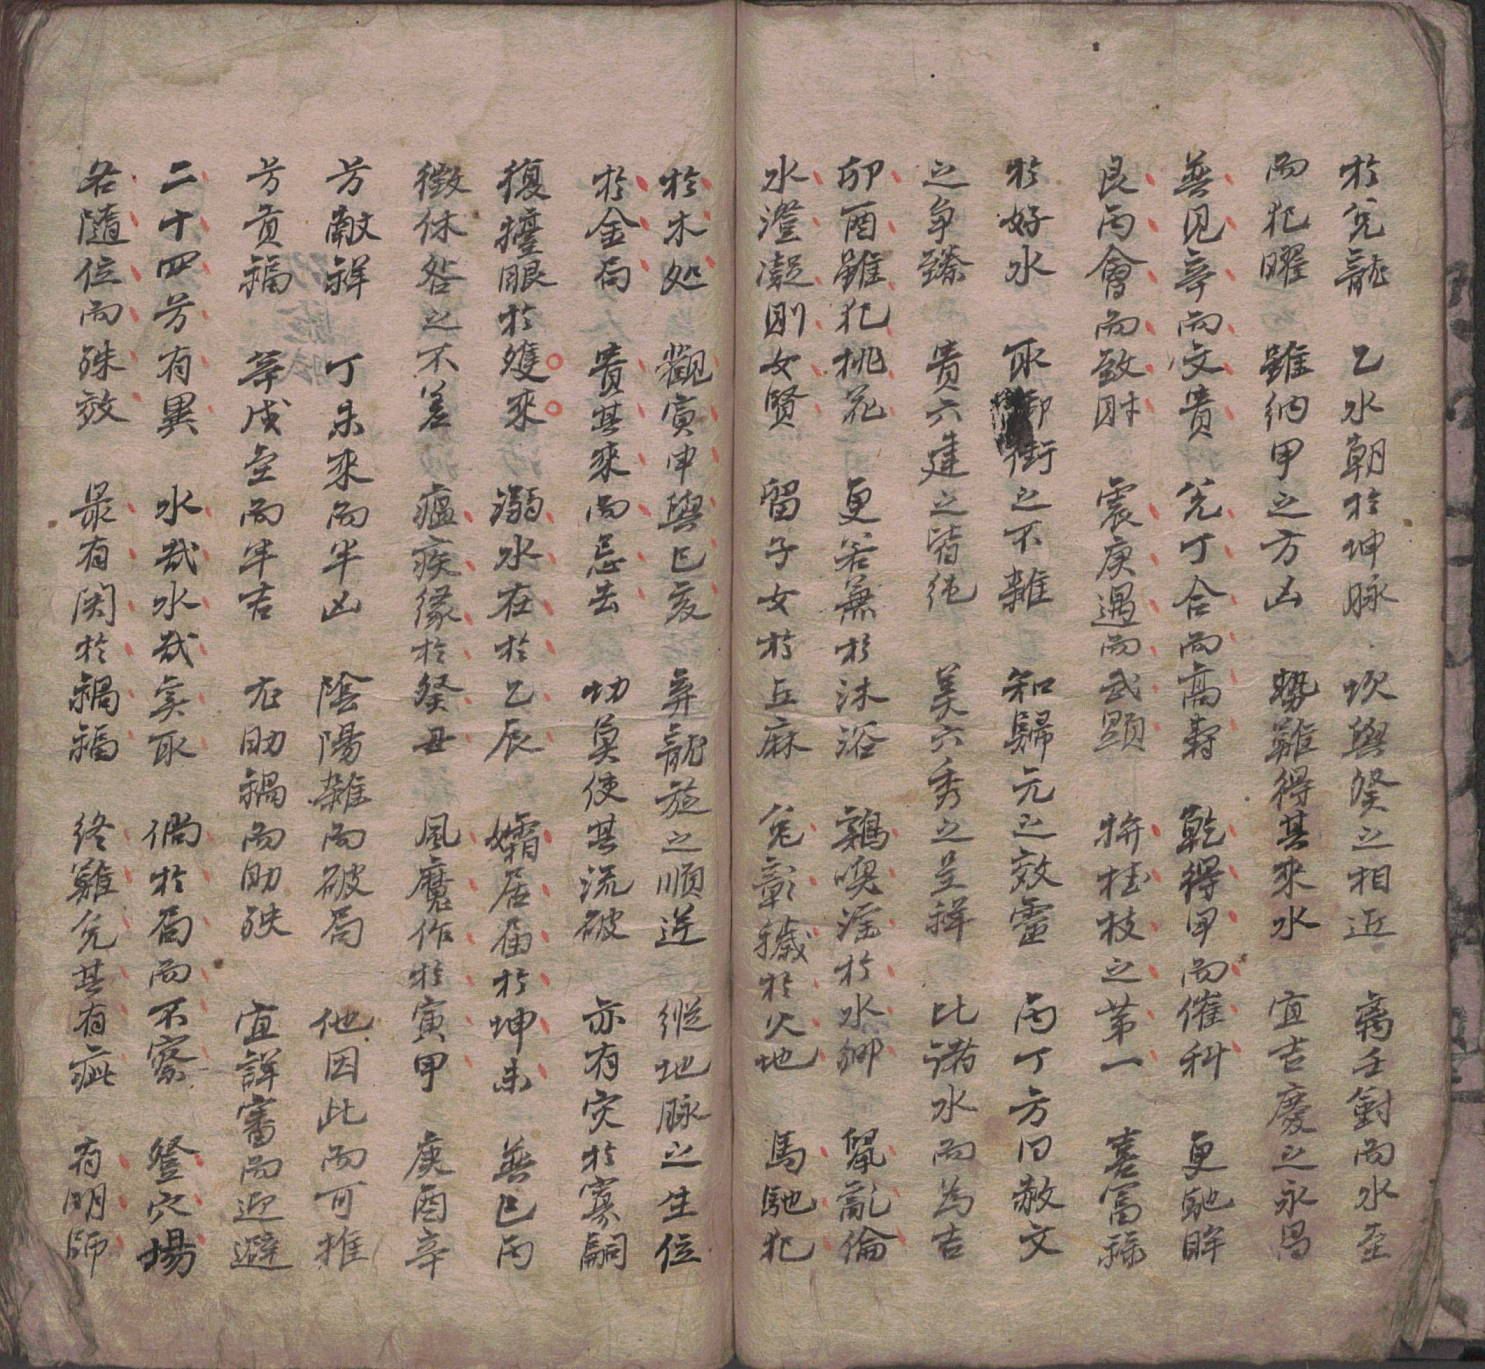 於兌龍 乙水朝於坤脉 坎與癸之相近 离壬對而水至
而犯曜 雖納甲之方凶 勢難得其來水 宜吉慶之永昌
巽見辛而文貴 兌丁合而高壽 乾得甲而催科 更馳眸
艮丙會而致財 震庚遇而武顯 拚桂枝之第一 喜富
於好水 取御街之不雜 知歸元之效靈 丙丁方曰赦文
之争臻 貴六建之皆純 美六秀之呈祥 比諸水而為吉
卯酉雖犯桃花 更若兼於沐浴 鶏喫滛於水鄉 鼠亂倫
水澄凝則女賢 留子女於丘麻 兔彰穢於火地 馬馳犯
於木処 觀寅申與巳亥 弄龍旋之順逆 縱地脉之生位
於金局 貴其來而忌去 切莫使其流破 亦有灾於寡嗣
復擡眼於雙來 溺水在於乙辰 孀居屆於坤未 無巳丙
徵休咎之不差 瘟疾縁於癸丑 風魔作於寅甲 庚酉辛
方獻祥 丁未來而半凶 隂陽雜而破局 他因此而可推
方貢福 等戌至而半吉 尢助禍而助殃 宜詳審而迎避
二十四方有異 水哉水哉奚取 倘於局而不察 登穴場
各隨位而殊效 最有関於禍福 終難免其有疵 有明師